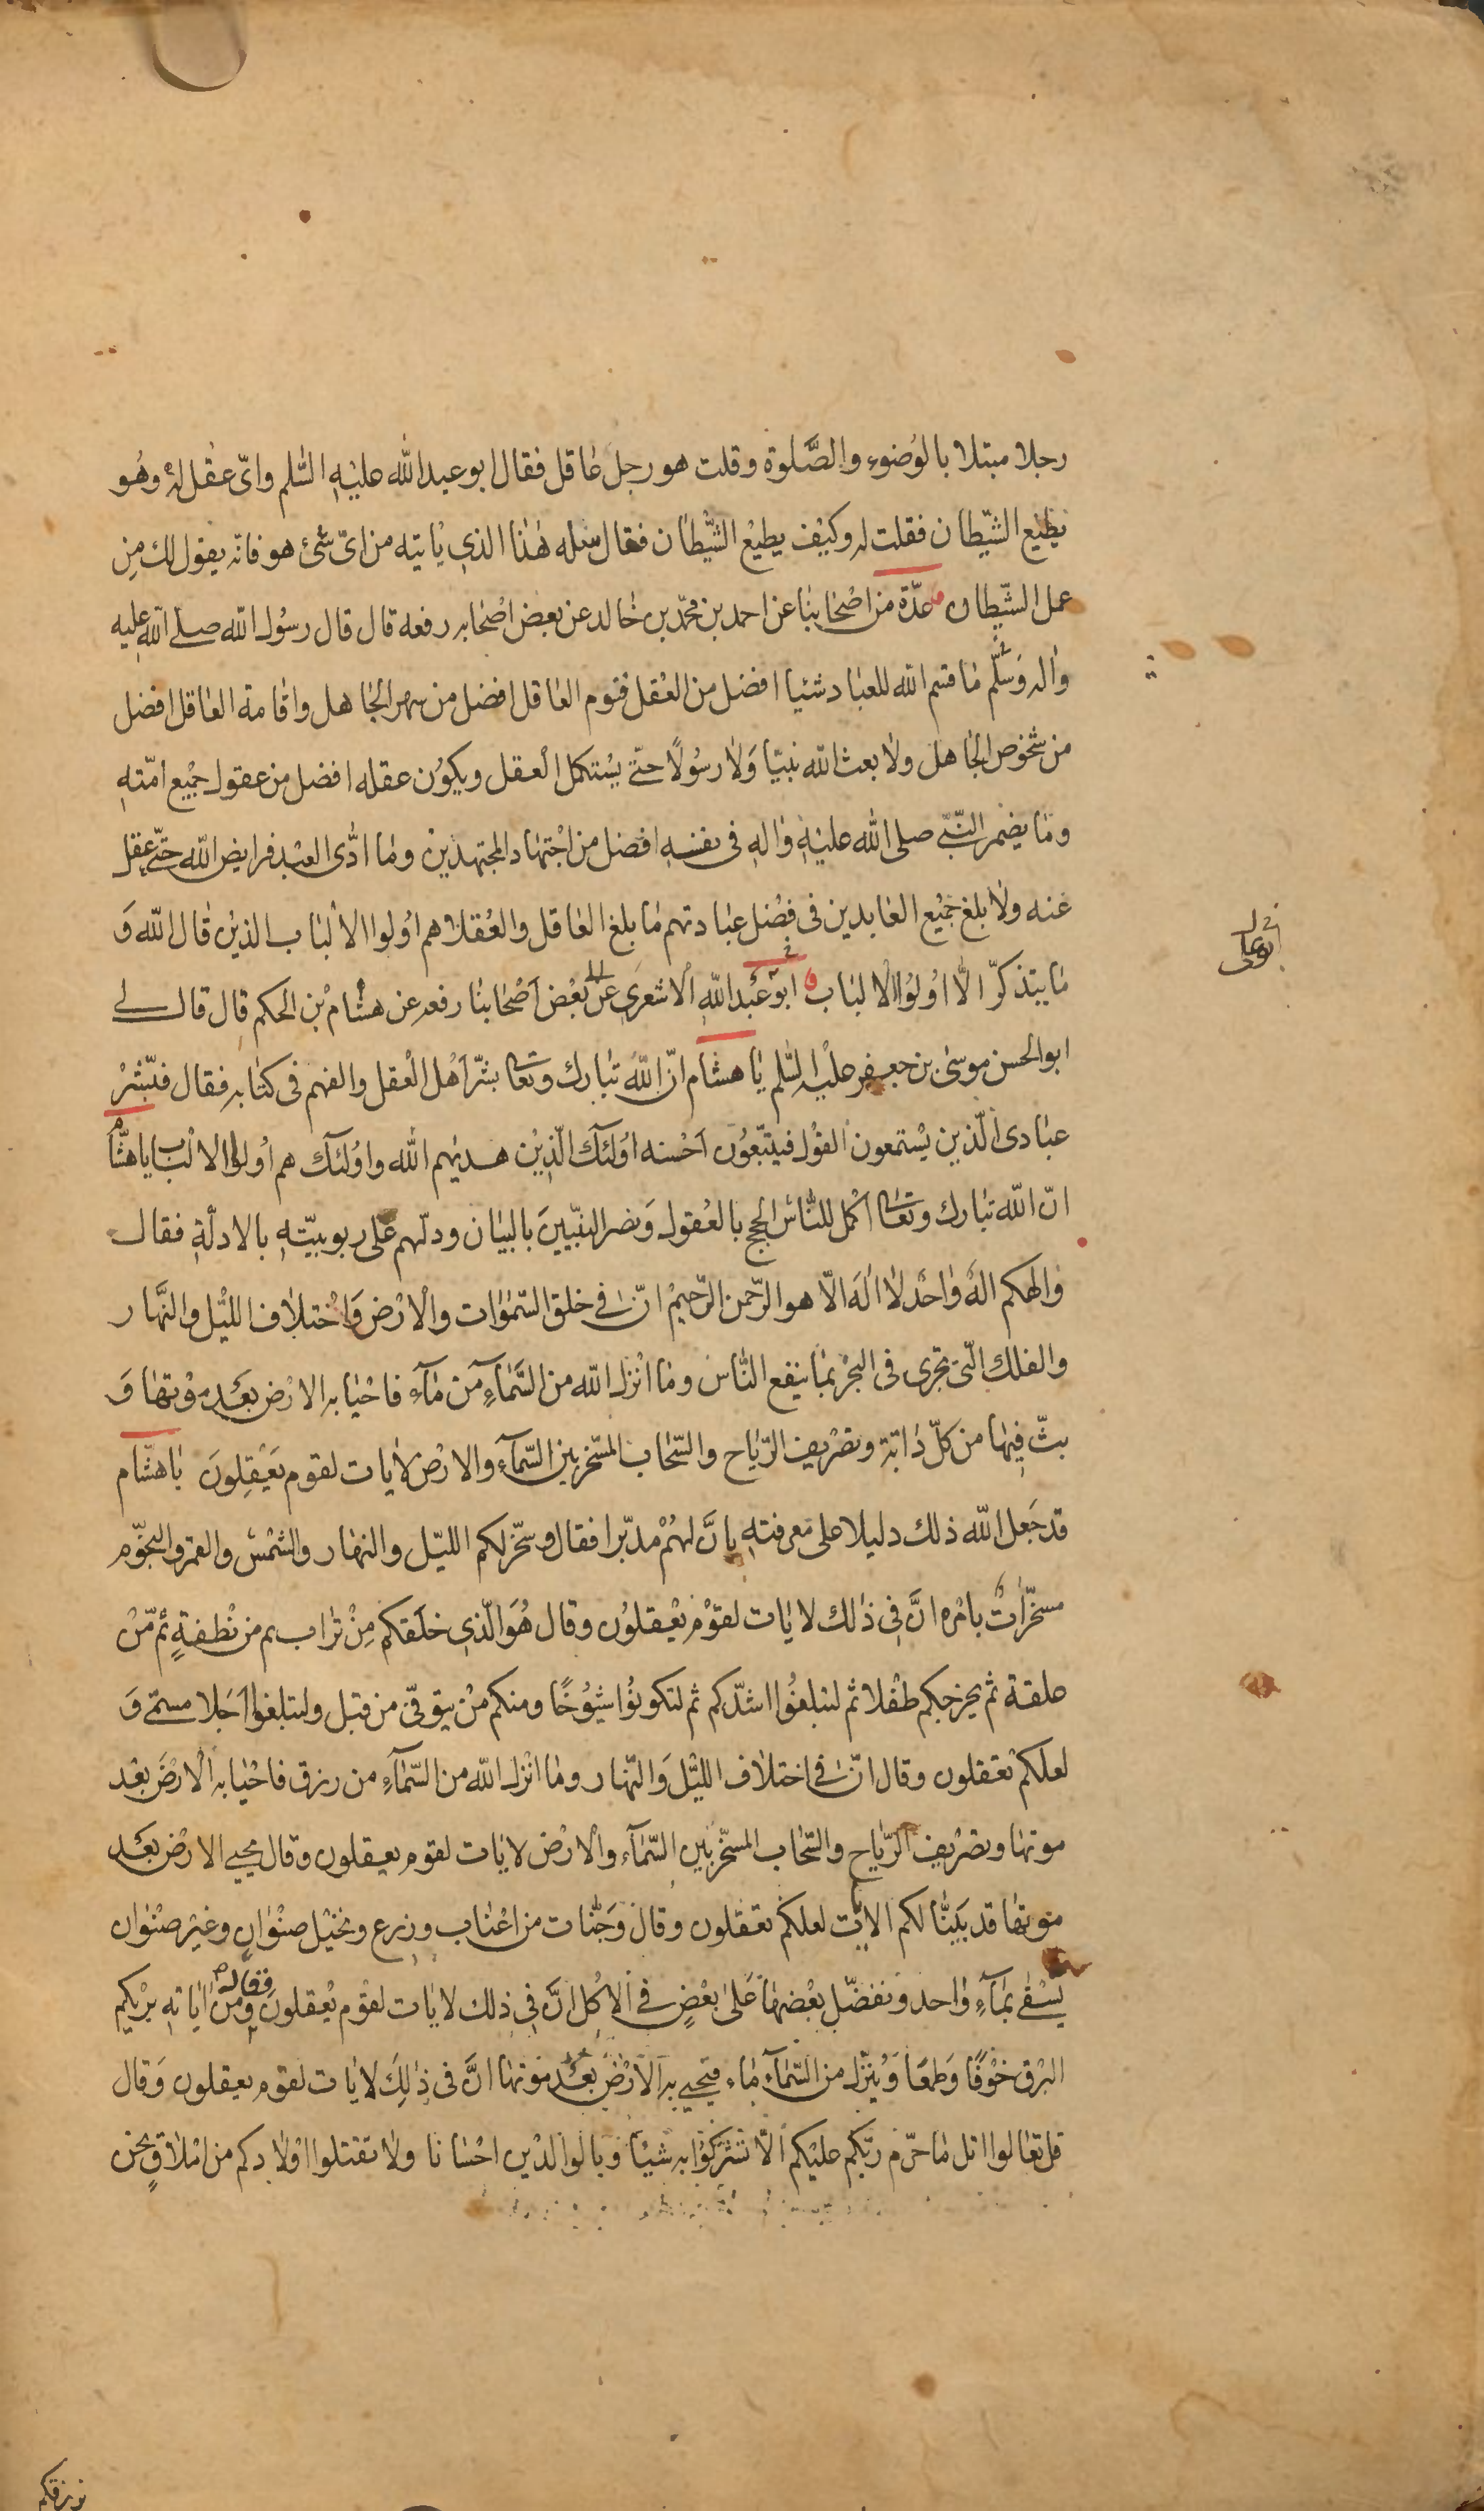 رجلا مبتلا بالوُضوءِ والصَّلوة وقلت هو رجل عاقل فقال ابو عبد الله عليْهِ السّلم وایّ عقل لهُ وهُو
يطيع الشّيطان فقلت له وكيْف يطيع الشّيْطان فقال سله هٰذا الذى يٰاتيه من اىّ شئ هو فانّه يقول لك مِن
عمل الشّيطان عدّة من اصْحابنا عن احمد بن محمّد بن خالد عن بعض اصْحابه رفعه قال قال رسُول الله صلى اللهِ عليه
واٰله وَسلّم ما قسم الله للعبٰاد شيئا افضل من العْقل فنوم العٰاقل افضل من سهر الجٰاهل واقٰامة العٰاقل افضل
من شخوص الجٰاهل ولا بعث الله نبيّا وَلا رسُولًا حتّى يسْتكمل العقل ويكوُن عقله افضل من عقول جميْع امّتهِ
ومٰا يضمر النّبىّ صلى الله عليْهِ واٰلهِ فى نفسهِ افضل من اجْتهاد المجتهديْن ومٰا ادّى العبْد فرايض الله حتّى عقل
عنه ولٰا بلغ جميْع العٰابدين فى فضْل عبٰادتهم مٰا بلغ العٰاقل والعُقلٰا هم اُولوا الالْبٰاب الذيْن قٰال الله وَ
مٰا يتذكّر الّا اوُلوُا الالبٰاب ابو عَبْد اللهِ الاشعرى عن بعْض اَصْحٰابنٰا رفعه عن هشٰام بْن الحكم قٰال قال لى
ابو الحسن موسىٰ بن جعفر عليْه السّلم يٰا هشٰام انّ اللهَ تبٰارك وتعٰا بشّر اَهْل الْعقل والفهم فى كتٰابه فقال فبّشرْ
عبٰادى الّذين يسْتمعون القوْل فيتّبعُون اَحْسنه اوُلئك الّذيْن هديٰهم الله واوُلئك هم اوُلوا الالبٰاب ياهشٰام
انّ الله تبٰارك وتعٰا اكْمل للنّاس الحجج بالعُقول وَنصر النبّيينَ بالبيٰان ودلّهم على ربوبيّتهِ بالادلّةِ فقال
والٰهكم الٰهٌ وٰاحدٌ لٰا الٰهَ الّا هو الرّحمن الرّحيمْ انّ فى خلق السّمٰوٰات والْارْض وَاخْتلٰاف الليْل والنّهٰار
والفلك الّتى تجرى فى البحْر بمٰا ينفع النّاس ومٰا انْزل الله من السّمٰآءِ من مٰآء فاحْيٰا به الارْض بعَد موْتهٰا وَ
بثّ فيْهٰا من كلّ دٰابّة وتصْريف الرّيٰاح والسّحٰاب المسّخر بين السّمآءِ والارْض لاٰيات لقوم يَعْقِلونَ يٰا هشٰام
قد جَعل الله ذلك دليلا على معرفتهِ بانَّ لهمْ مدبّرا فقال وسخّر لكم الليّل والنهٰار والشمْس والقمر والنجوّم
مسخّراتٌ بامْره انَّ فى ذٰلك لايٰات لقوْم يعْقلوُن وقال هُوَ الّذى خلَقكم مِنْ تراب ثم من نُطفةٍ ثم مّنْ
علقة ثم يخرجكم طفْلا ثم لتبلغُوا اشدّكم ثم لتكونوُا شيُوُخًا ومنكم منْ يتوفّى من قبل ولتبلغوا اَجَلا مسمّى وَ
لعلكمْ تعقلون وقال انّ فى اختلاف الليْل وَالنّهٰار ومٰا انْزل الله من السّمٰآءِ من رزق فاحْيٰا به الْارْضَ بعْد
موتهٰا وتصْريف الرّيٰاح والسّحٰاب المسّخر بين السّمٰآء والْارْض لايٰات لقوم يعقلون وقال يحيى الارْض بعَد
موتهٰا قد بَيّنٰا لكم الايٰت لعلكمْ تعقلون وقال وَجنّات من اعْناب وزرع ونخيْل صنْوٰان وغيْر صنْوٰان
يسْقٰى بمٰآءٍ وٰاحد ونفضّل بعْضهٰا عَلىٰ بعْضٍ فى الاكل انَّ فى ذلك لايٰات لقوْم يعْقلونَ فقال ومن اٰيٰاته يرْيكم
البرْق خوْفًا وَطمَعًا وَيُنزّل من السّمٰآءِ مٰاء فيحيى به الْارْضَ بعْدَ موْتهٰا انَّ فى ذٰلِكَ لايٰات لقوم يعقلون وَقال
قل تعٰالوا اتل مٰا حرّم ربّكم عليْكم الّا تشْركوُا به شيئًا وبالوالديْن احْسٰانا ولٰا تقتلوا اوْلٰادكم من امْلٰاقٍ نحن
نرزقكم